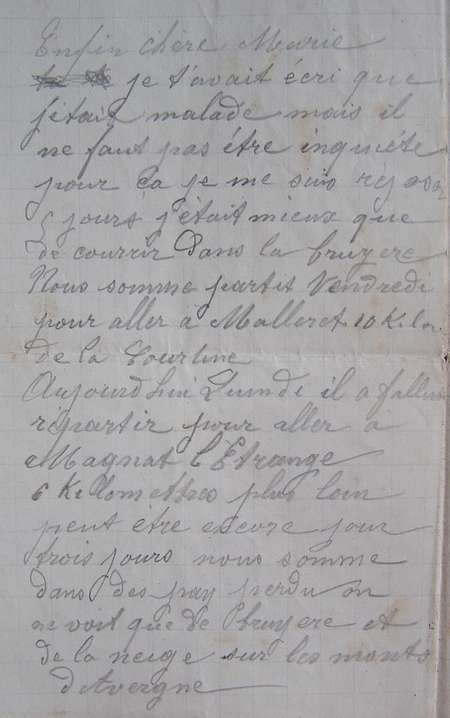 Enfin chère Marie
je t'avait écri que
j'étais malade mais il
ne faut pas être inquiéte
pour ça je me suis reposer
5 jours j'était mieux que
de courrir dans la bruyere
Nous somme partit Vendredi
pour aller à Malleret 10 Kilo
de la Courtine
Aujourdhui Lundi il a fallu
repartir pour aller à
Magnat l'Etrange
6 Kilomettres plus loin
peut être encore pour
trois jours nous somme
dans des pay perdu on
ne voit que de bruyere et
de la neige sur les monts
d'Avergne